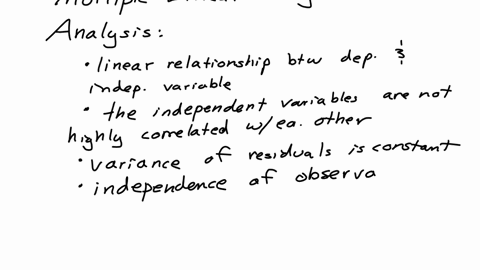 Multiple Linear
Analysis:
• linear relationship btw dep. &
indep. variable
• the independent variables are not
highly correlated w/ea. other
• variance of residuals is constant
• independence of observa